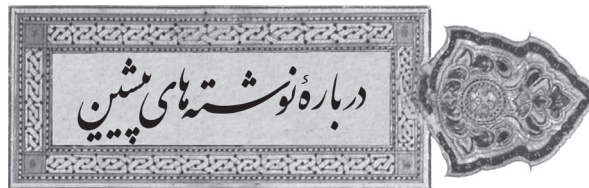 دربارهٔ نوشته‌های پیشین